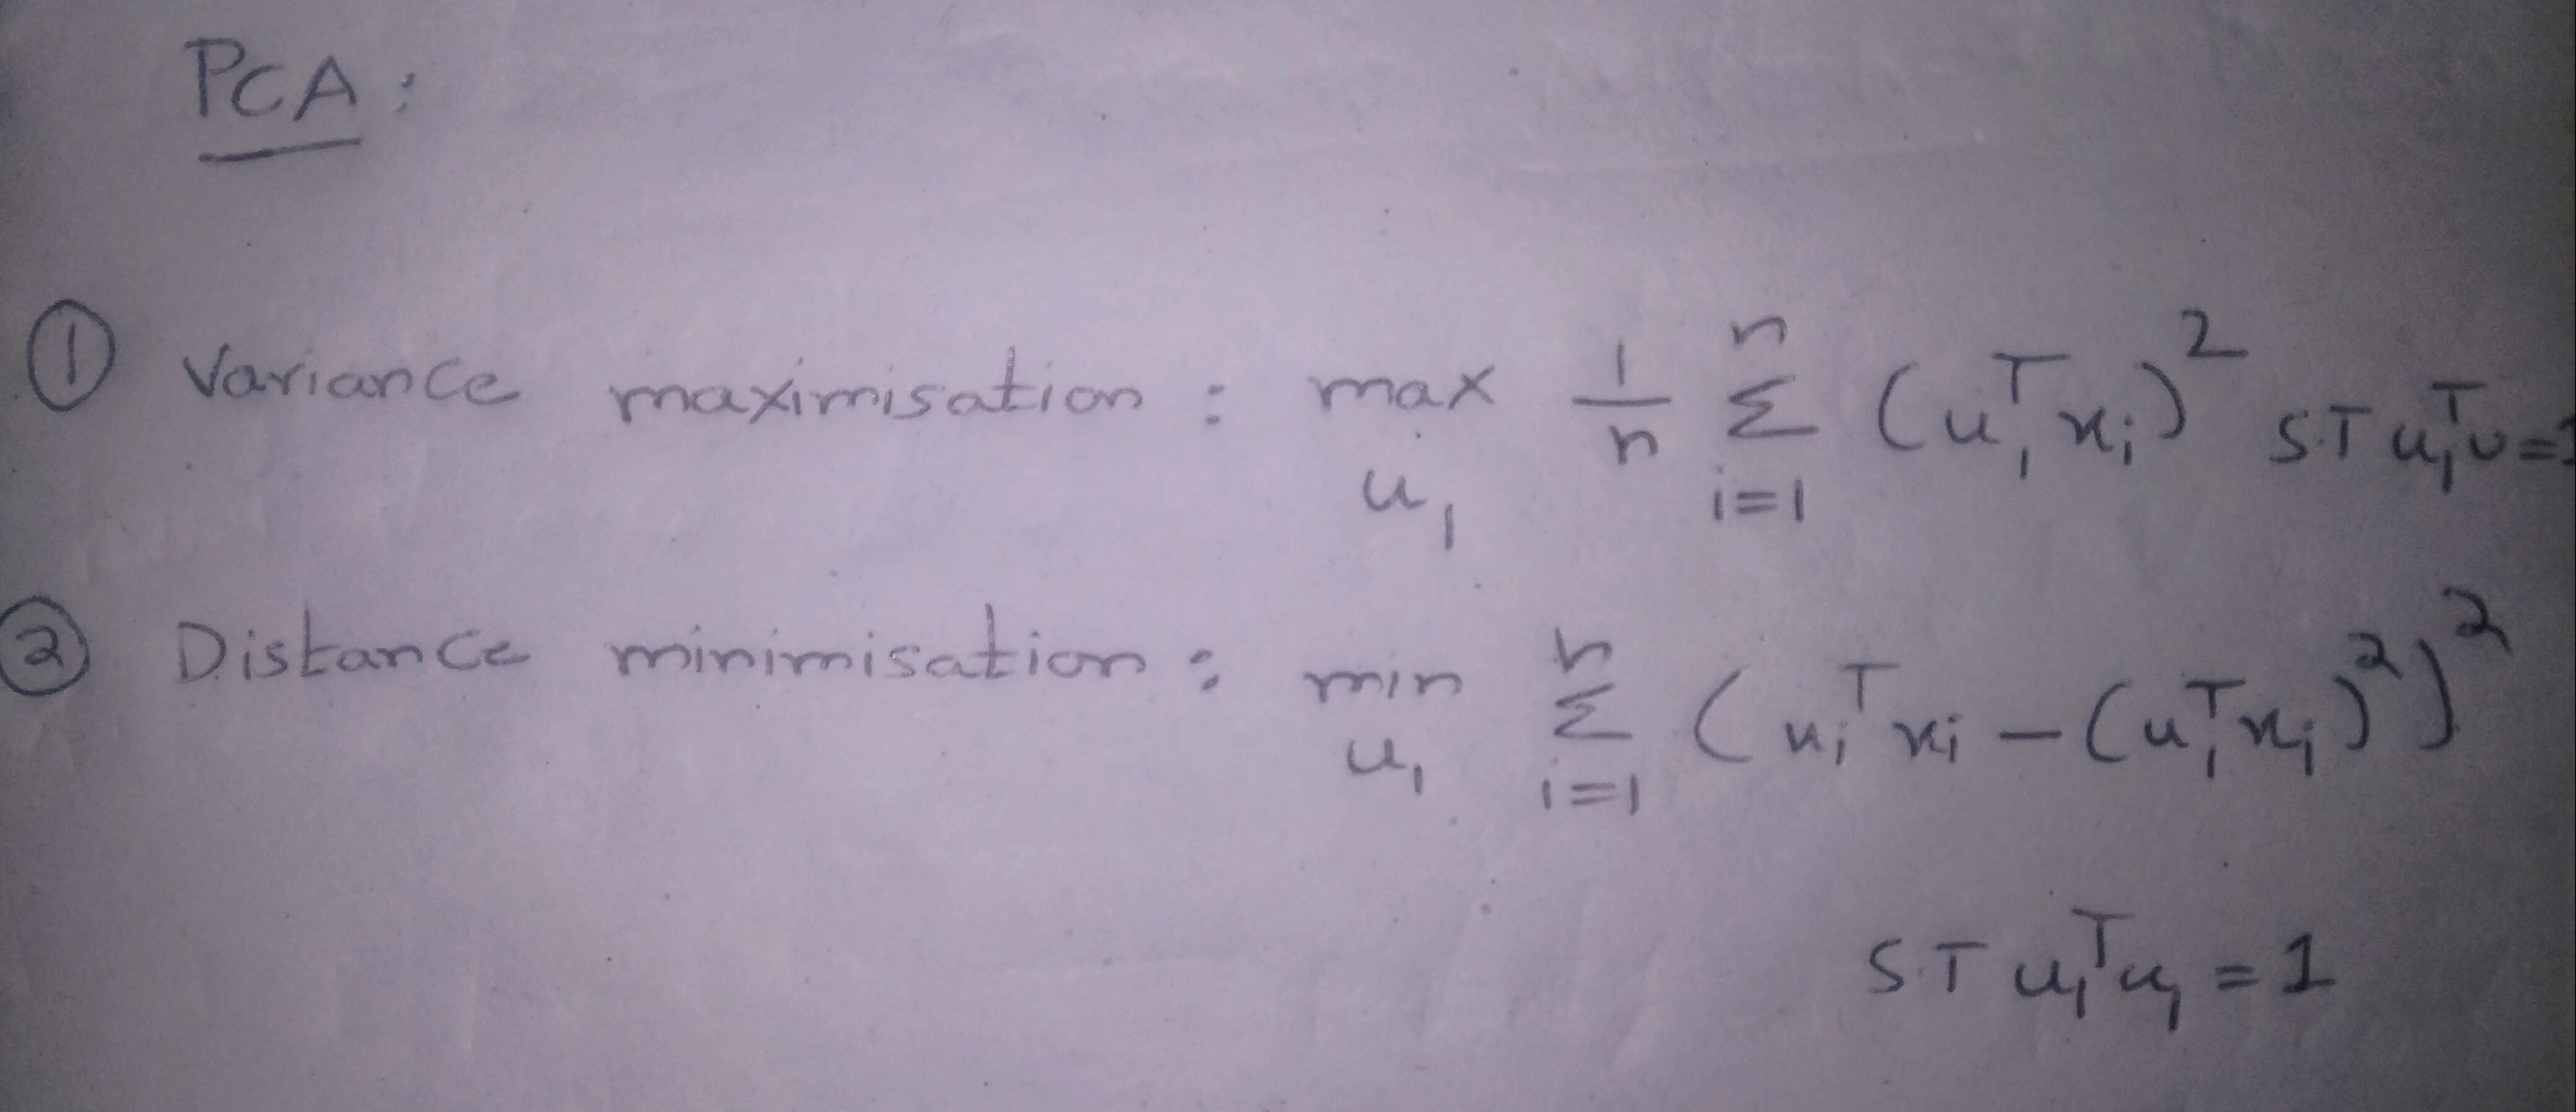 PCA:
① Variance maximisation : max u₁ 1/n Σ i=1 n (u₁ᵀxᵢ)² S.T u₁ᵀu=1
② Distance minimisation : min u₁ Σ i=1 n (xᵢᵀxᵢ − (u₁ᵀxᵢ)²)²
S.T u₁ᵀu₁ = 1